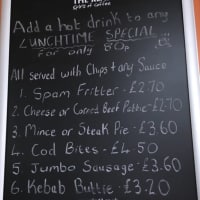 Add a hot drink to any
LUNCHTIME SPECIAL
For only 80p
All served with Chips + any Sauce
1. Spam Fritter - £2.70
2. Cheese or Corned Beef £2.70
3. Mince or Steak Pie - £3.60
4. Cod Bites - £4.50
5 Jumbo Sausage - £3.60
6. Kebab Buttie - £3.20